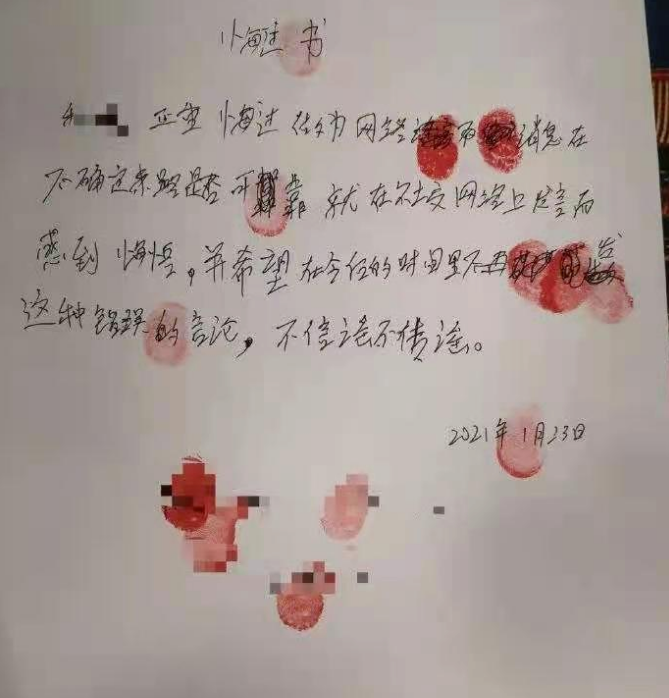 悔过书
正重 悔过 网络 消息在
不确定来路是否可靠 就在社交网络上发言而
感到悔悟，并希望在今后的时间里不再 发
这种错误的言论，不信谣不传谣。
2021年1月23日